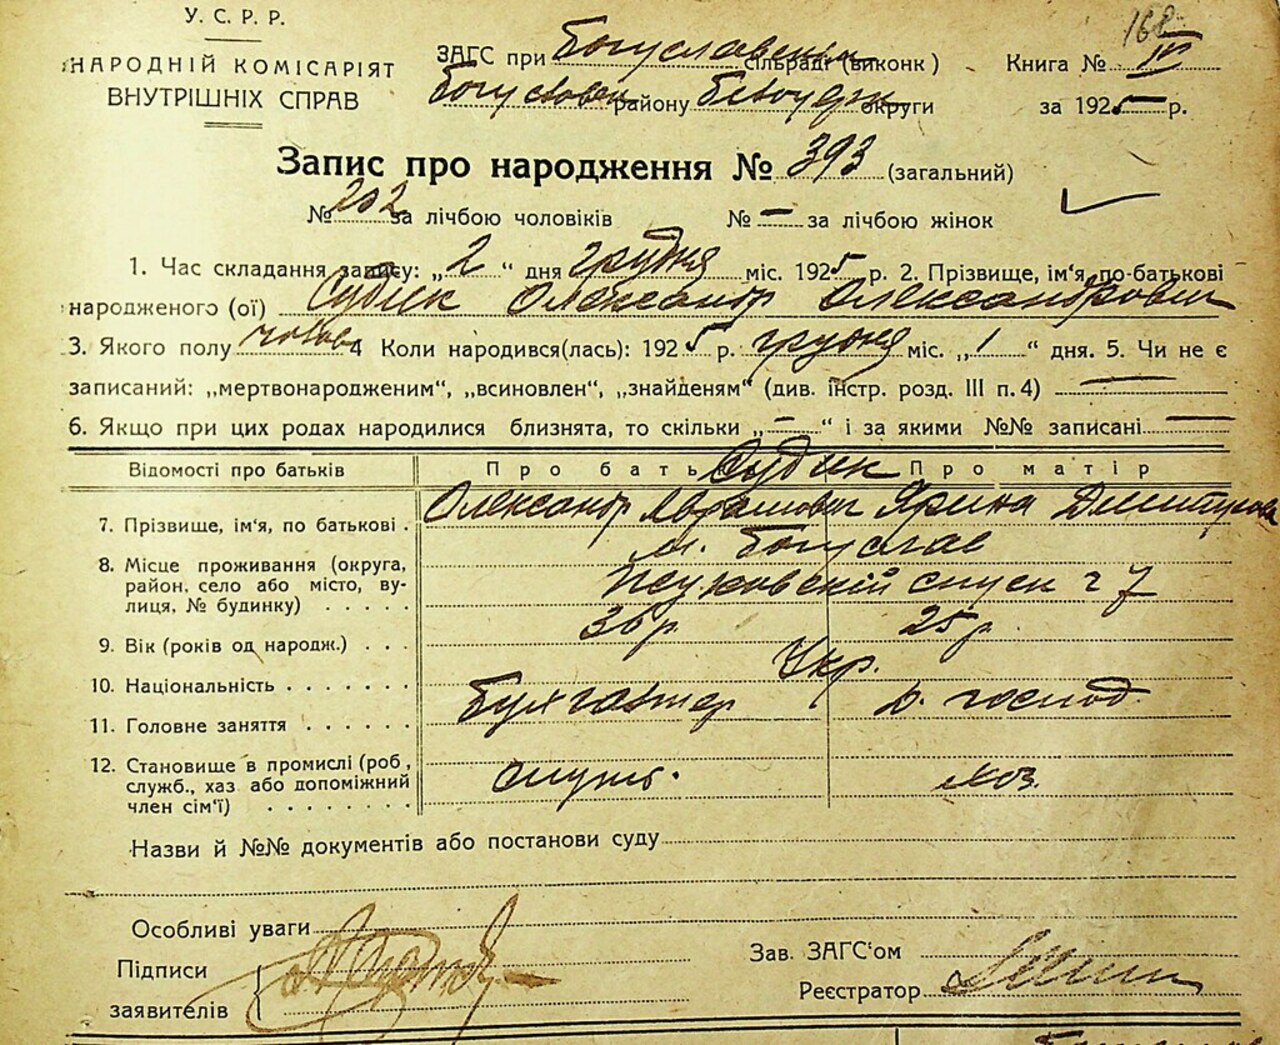 У. С. Р. Р.
НАРОДНІЙ КОМІСАРІЯТ
ВНУТРІШНІХ СПРАВ
168
ЗАГС при Богуславськім сільраді (виконк) Книга № IV
Богуславськ району Білоцерк округи за 1925 р.
Запис про народження № 393 (загальний)
№ 202 за лічбою чоловіків № – за лічбою жінок
1. Час складання запису: „2“ дня грудня міс. 1925 р. 2. Прізвище, ім'я, по-батькові
народженого (ої) Судик Олександр Олександрович
3. Якого полу чолов 4 Коли народився(лась): 1925 р. грудня міс. „1“ дня. 5. Чи не є
записаний: „мертвонародженим“, „всиновлен“, „знайденям“ (див. інстр. розд. III п. 4) —
6. Якщо при цих родах народилися близнята, то скільки „–“ і за якими №№ записані —
Відомості про батьків Про батька Судик Про матір
7. Прізвище, ім'я, по батькові. Олександр Аврамович Ярина Дмитрова
8. Місце проживання (округа, район, село або місто, вулиця, № будинку) м. Богуслав
спуск ч 7
9. Вік (років од народж.) 36 р. 25 р.
10. Національність Укр.
11. Головне заняття Бухгалтер д. господ.
12. Становище в промислі (роб., служб., хаз або допоміжний член сім'ї) служ. хоз.
Назви й №№ документів або постанови суду
Особливі уваги
Підписи
заявителів
Зав. ЗАГС'ом
Реєстратор